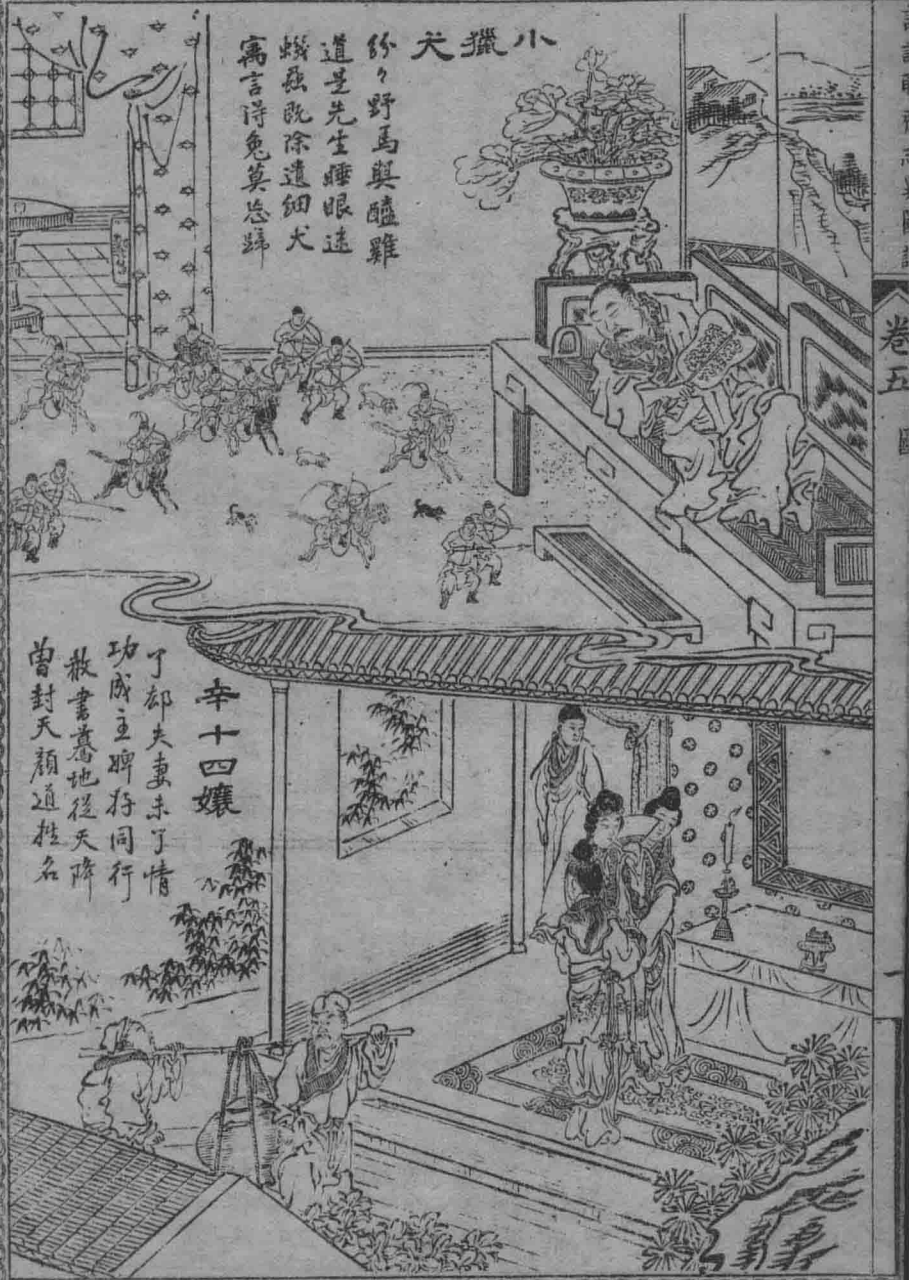 詳註聊齋志異圖詠
卷五
圖
一
小獵犬
紛々野馬與醯雞
道是先生睡眼迷
蟣蝨既除遺細犬
寓言得兔莫忘蹄
辛十四孃
了卻夫妻未了情
功成主婢將同行
赦書驀地從天降
曾對天顏道姓名